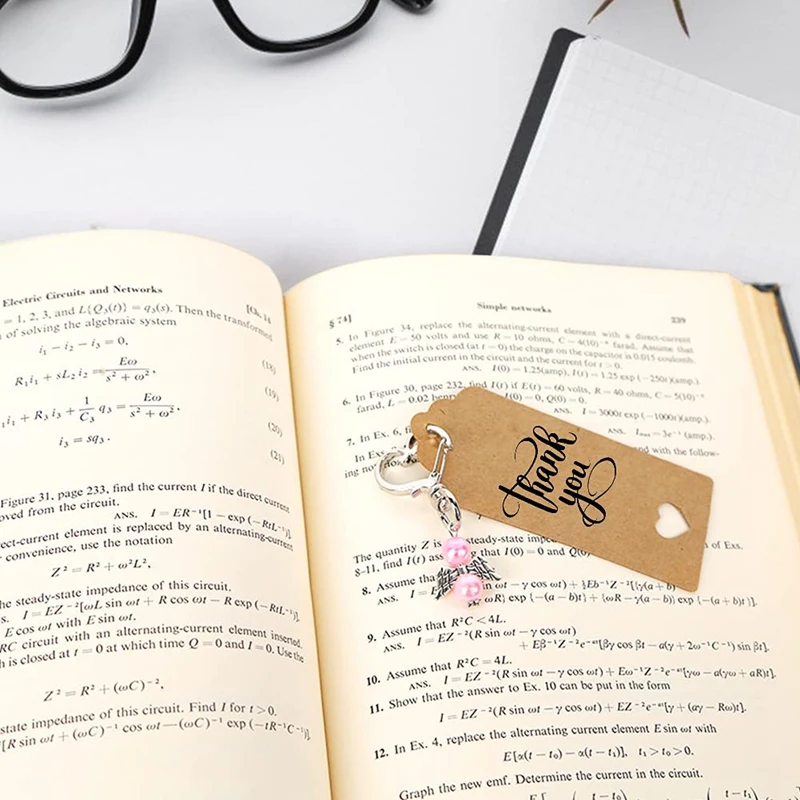 Electric Circuits and Networks
[Ch. 14
= 1, 2, 3, and L{Q₃(t)} = q₃(s). Then the transformed
of solving the algebraic system
i₁ − i₂ − i₃ = 0,
R₁i₁ + sL₂i₂ = Eω/(s² + ω²),
(18)
(19)
₁i₁ + R₃i₃ + 1/C₃ q₃ = Eω/(s² + ω²),
(20)
i₃ = sq₃.
(21)
Figure 31, page 233, find the current I if the direct current
oved from the circuit.
ANS. I = ER⁻¹[1 − exp (−RtL⁻¹)].
ect-current element is replaced by an alternating-current
convenience, use the notation
Z² = R² + ω²L²,
he steady-state impedance of this circuit.
s. I = EZ⁻²[ωL sin ωt + R cos ωt − R exp (−RtL⁻¹)].
E cos ωt with E sin ωt.
RC circuit with an alternating-current element inserted.
h is closed at t = 0 at which time Q = 0 and I = 0. Use the
Z² = R² + (ωC)⁻²,
state impedance of this circuit. Find I for t > 0.
[R sin ωt + (ωC)⁻¹ cos ωt − (ωC)⁻¹ exp (−tR⁻¹C⁻¹)].
§ 74]
Simple networks
239
5. In Figure 34, replace the alternating-current element with a direct-current
element E = 50 volts and use R = 10 ohms, C = 4(10)⁻⁴ farad. Assume that
when the switch is closed (at t = 0) the charge on the capacitor is 0.015 coulomb.
Find the initial current in the circuit and the current for t > 0.
ANS. I(0) = 1.25(amp), I(t) = 1.25 exp (−250t)(amp).
6. In Figure 30, page 232, find I(t) if E(t) = 60 volts, R = 40 ohms, C = 5(10)
farad, L = 0.02 henry
I(0) = 0, Q(0) = 0.
ANS. I = 3000t exp (−1000t)(amp.)
7. In Ex. 6, fi
ANS. Iₘₐₓ = 3e⁻¹ (amp).
In Ex.
nd with the follow-
ing no
thank
you
The quantity Z is
steady-state impe
of Exs.
8-11, find I(t) ass
that I(0) = 0 and Q(0)
8. Assume tha
ANS. I = E
in ωt − γ cos ωt) + ½Eb⁻¹Z⁻²[{γ(a + b)
ωR} exp {−(a − b)t} + {ωR − γ(a − b)} exp {−(a + b)t}].
9. Assume that R²C < 4L.
ANS. I = EZ⁻²(R sin ωt − γ cos ωt)
+ Eβ⁻¹Z⁻²e⁻ᵃᵗ[βγ cos βt − a(γ + 2ω⁻¹C⁻¹) sin βt].
10. Assume that R²C = 4L.
ANS. I = EZ⁻²(R sin ωt − γ cos ωt) + Eω⁻¹Z⁻²e⁻ᵃᵗ[γω − a(γω + aR)t].
11. Show that the answer to Ex. 10 can be put in the form
I = EZ⁻²(R sin ωt − γ cos ωt) + EZ⁻²e⁻ᵃᵗ[γ + (aγ − Rω)t].
12. In Ex. 4, replace the alternating current element E sin ωt with
E[α(t − t₀) − α(t − t₁)], t₁ > t₀ > 0.
Graph the new emf. Determine the current in the circuit.